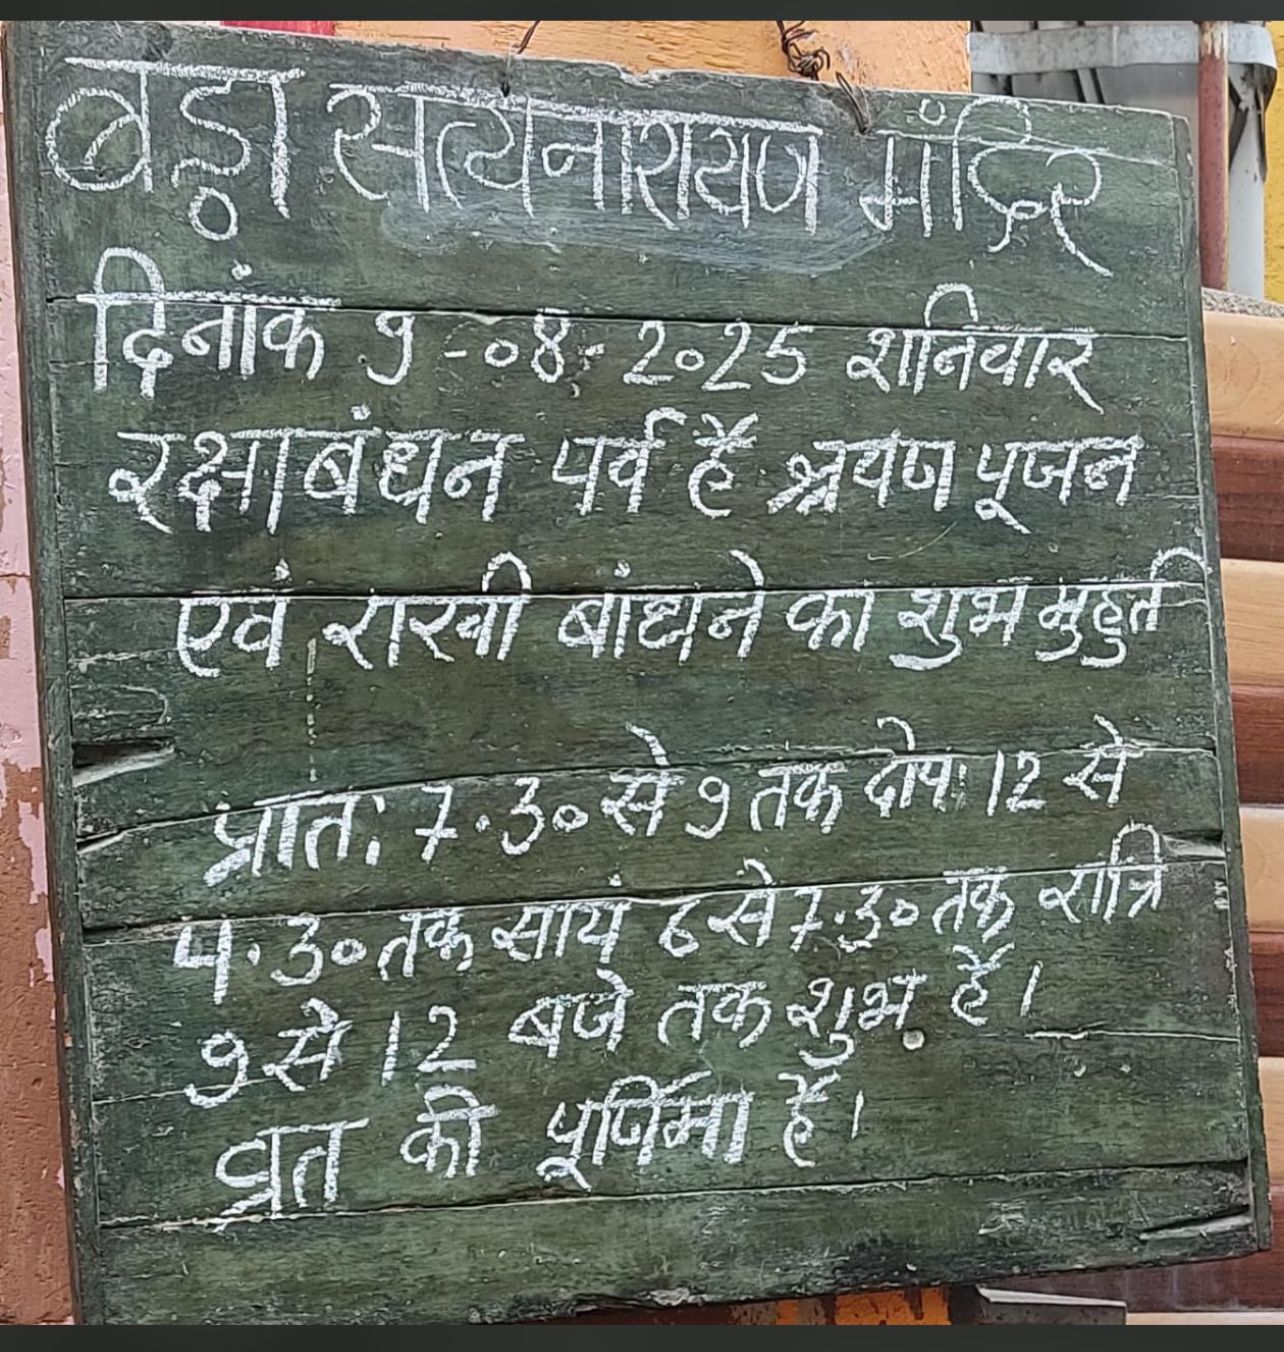 बड़ा सत्यनारायण मंदिर
दिनांक 9-08-2025 शनिवार
रक्षाबंधन पर्व हैं श्रवण पूजन
एवं राखी बांधने का शुभ मुहुर्त
प्रात: 7.30 से 9 तक दोप: 12 से
4.30 तक सायं ६ से 7.30 तक रात्रि
9 से 12 बजे तक शुभ हैं।
व्रत की पूर्णिमा हैं।